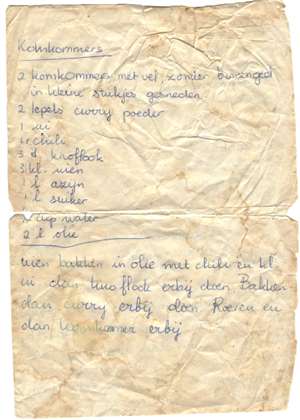 Komkommers
2 komkommers met vel zonder
in kleine stukjes gesneden
2 lepels curry poeder
1 ui
chili
3 t. knoflook
3 kl. uien
1 l azijn
1 l suiker
cup water
2 l olie
uien bakken in olie met chili en kl.
ui dan knoflook erbij doen. Bakken
dan curry erbij doen. Roeren en
dan komkommer erbij